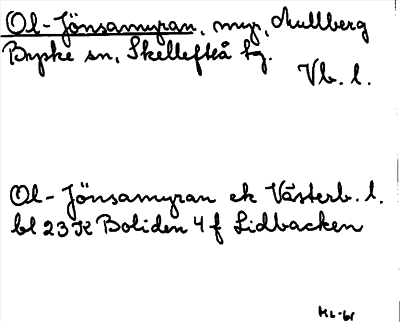 Ol-Jönsamyran, myr, Mullberg
Bygke sn, Skellefteå tg.
Vb. l.
Ol-Jönsamyran ek Västerb. l.
bl 23 K Boliden 4 f Lidbacken